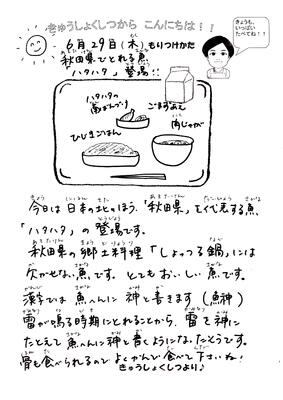 きゅうしょくしつから こんにちは!!
きょうも、
いっぱい
たべてね!!
6月29日(木)もりつけかた
秋田県でとれる魚
「ハタハタ」登場!!
ハタハタの
南ばんづけ
ごまずあえ
ひじきごはん
肉じゃが
今日は日本の北のほう、「秋田県」を代表する魚
「ハタハタ」の登場です。
秋田県の郷土料理「しょっつる鍋」には
欠かせない魚です。とてもおいしい魚です。
漢字では魚へんに神と書きます(魚神)
雷が鳴る時期にとれることから、雷を神に
たとえて魚へんに神と書くようになったそうです。
骨も食べられるのでよくかんで食べて下さいね!
きゅうしょくしつより♪